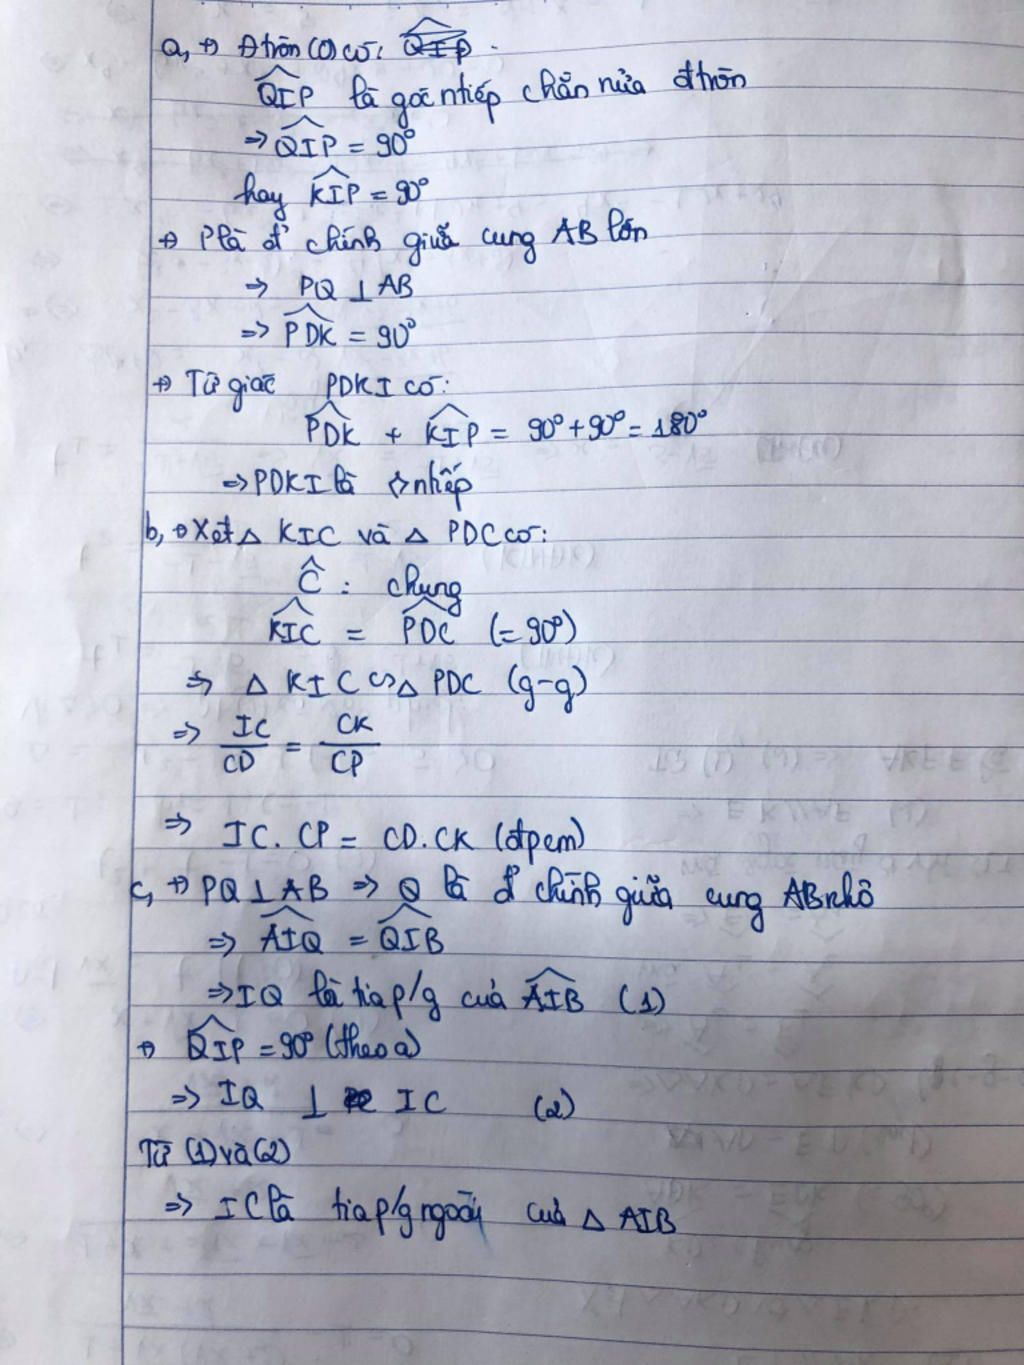 a, +) Đ tròn (O) có:
Q̂IP là góc ntiếp chắn nửa đtròn
=> Q̂IP = 90°
hay K̂IP = 90°
+) P là đ' chính giữa cung AB lớn
=> PQ ⊥ AB
=> P̂DK = 90°
+) Tứ giác PDKI có:
P̂DK + K̂IP = 90° + 90° = 180°
=> PDKI là ◇ ntiếp
b, +) Xét △ KIC và △ PDC có:
Ĉ : chung
K̂IC = P̂DC (= 90°)
=> △ KIC ∽ △ PDC (g-g)
=> IC/CD = CK/CP
=> IC. CP = CD. CK (đpcm)
c, +) PQ ⊥ AB => Q là đ' chính giữa cung AB nhỏ
=> ÂIQ = Q̂IB
=> IQ là tia p/g của ÂIB (1)
+) Q̂IP = 90° (theo a)
=> IQ ⊥ IC (2)
Từ (1) và (2)
=> IC là tia p/g ngoài của △ AIB